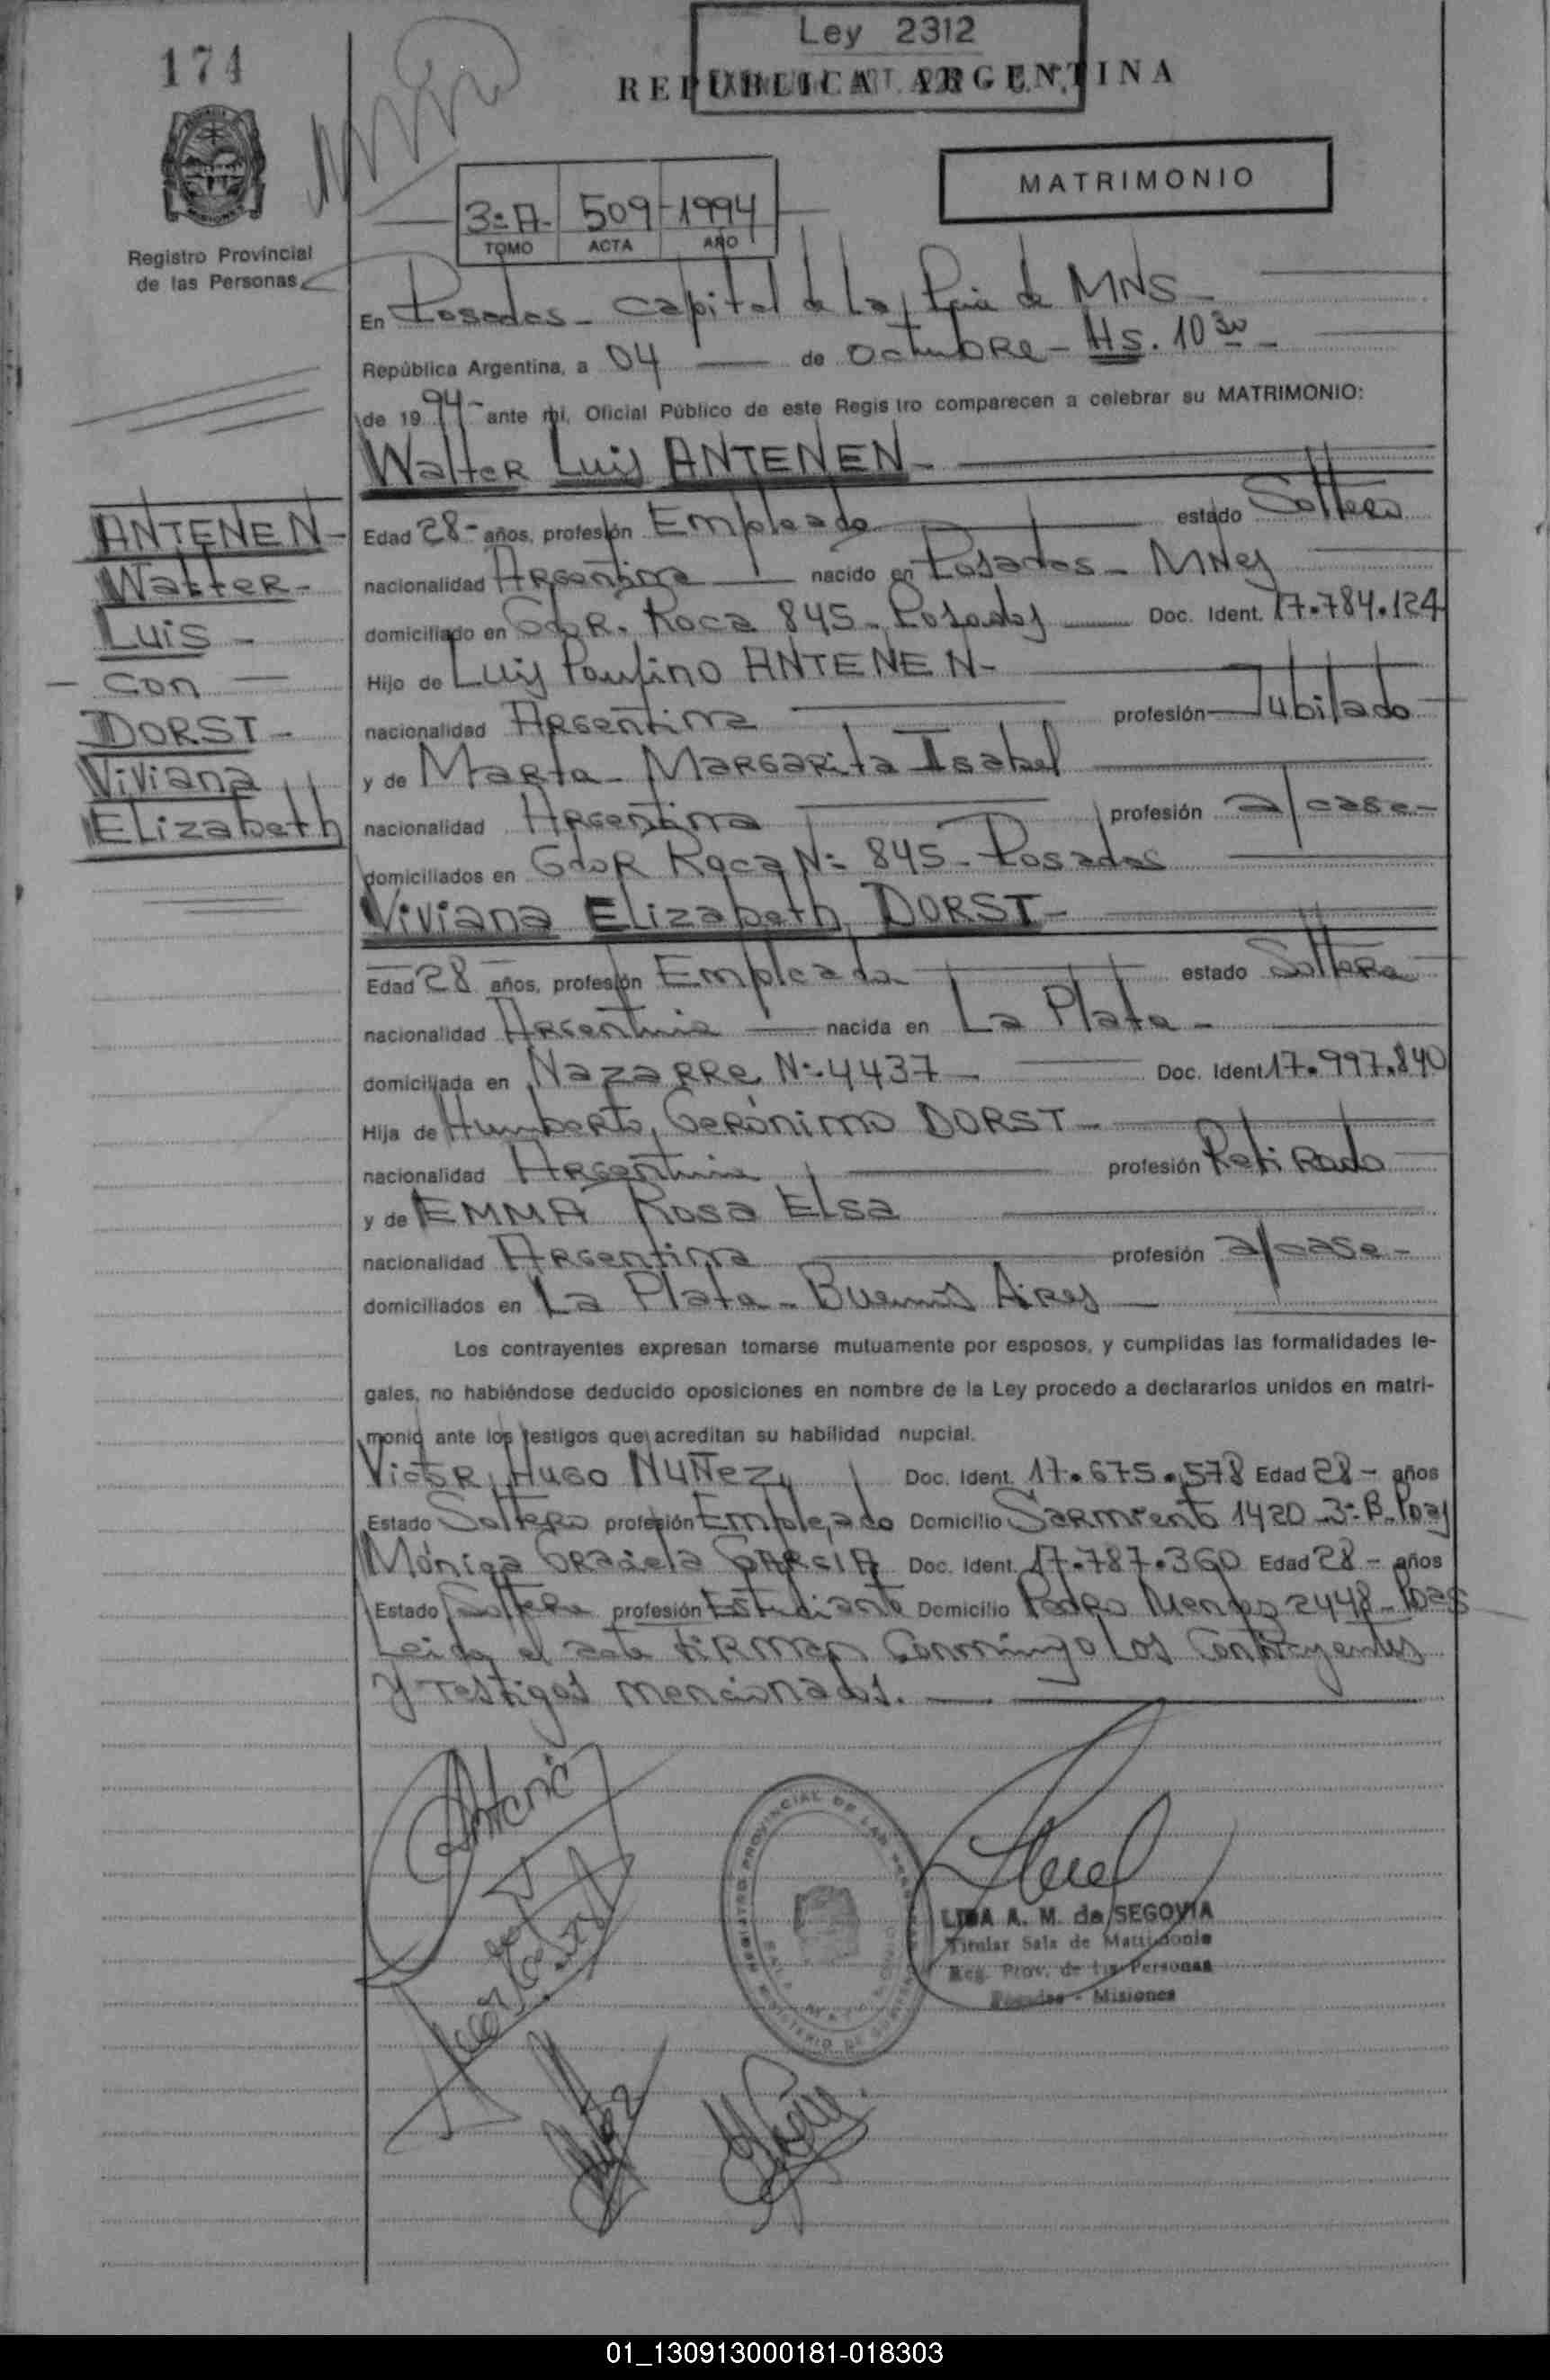 Ley 2312
174
REPUBLICA ARGENTINA
MATRIMONIO
3=A- 509-1994
TOMO ACTA AÑO
Registro Provincial
de las Personas
En Posadas - Capital de la Pcia de MNS -
República Argentina, a 04 — de Octubre - Hs. 10 30 -
de 19 94- ante mi, Oficial Público de este Registro comparecen a celebrar su MATRIMONIO:
Walter Luis ANTENEN -
ANTENEN -
Walter -
Luis -
- Con -
DORST -
Viviana
Elizabeth
Edad 28- años, profesión Empleado estado Soltero
nacionalidad Argentina nacido en Posadas - MNes
domiciliado en Gdor. Roca 845 - Posadas Doc. Ident. 17.784.124
Hijo de Luis Paulino ANTENEN -
nacionalidad Argentina profesión Jubilado
y de Marta - Margarita Isabel
nacionalidad Argentina profesión a/casa -
domiciliados en Gdor Roca N= 845 - Posadas
Viviana Elizabeth DORST -
Edad 28 años, profesión Empleada estado Soltera
nacionalidad Argentina nacida en La Plata -
domiciliada en Nazarre N=4437 - Doc. Ident 17.997.840
Hija de Humberto Gerónimo DORST -
nacionalidad Argentina profesión Retirado
y de EMMA Rosa Elsa
nacionalidad Argentina profesión a/casa -
domiciliados en La Plata - Buenos Aires
Los contrayentes expresan tomarse mutuamente por esposos, y cumplidas las formalidades le-
gales, no habiéndose deducido oposiciones en nombre de la Ley procedo a declararlos unidos en matri-
monio ante los testigos que acreditan su habilidad nupcial.
Victor Hugo NUÑez Doc. Ident. 17.675.578 Edad 28- años
Estado Soltero profesión Empleado Domicilio Sarmiento 1420 - 3=B - Pdas
Mónica Graciela GARCIA Doc. Ident. 17.787.360 Edad 28- años
Estado Soltera profesión Estudiante Domicilio Pedro Mendez 2448 - Pdas
Leida el acta FIRMAN Conmingo Los Contrayentes
y Testigos mencionados.
LIDA A. M. de SEGOVIA
Titular Sala de Matrimonio
Reg. Prov. de las Personas
Posadas - Misiones
01_130913000181-018303